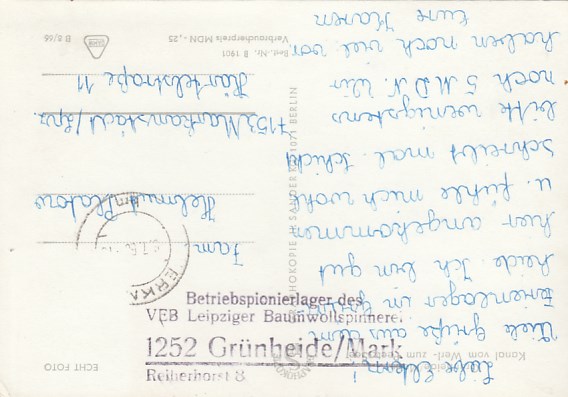 Liebe Eltern!
Viele Grüße aus dem
Ferienlager in Grün-
heide. Ich bin gut
hier angekommen
u. fühle mich wohl.
Schreibt mal. Schickt
bitte wenigstens
noch 5 M.D.N. Wir
haben noch viel vor.
Eure Karen
Fam
Helmut
7153 Markranstädt/Lpz
Härtelstraße 11
Betriebspionierlager des
VEB Leipziger Baumwollspinnerei
1252 Grünheide/Mark
Reiherhorst 8
ERKN
ECHT FOTO
Kanal vom Werl- zum
1071 BERLIN
Best.-Nr. B 1901
Verbraucherpreis MDN -,25
B 8/66